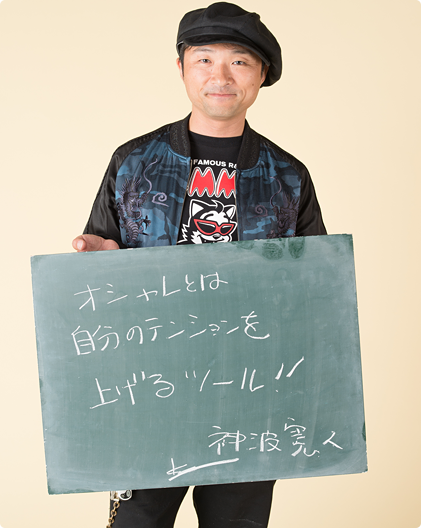 FAMOUS R
MM
オシャレとは
自分のテンションを
上げるツール!!
神波憲人